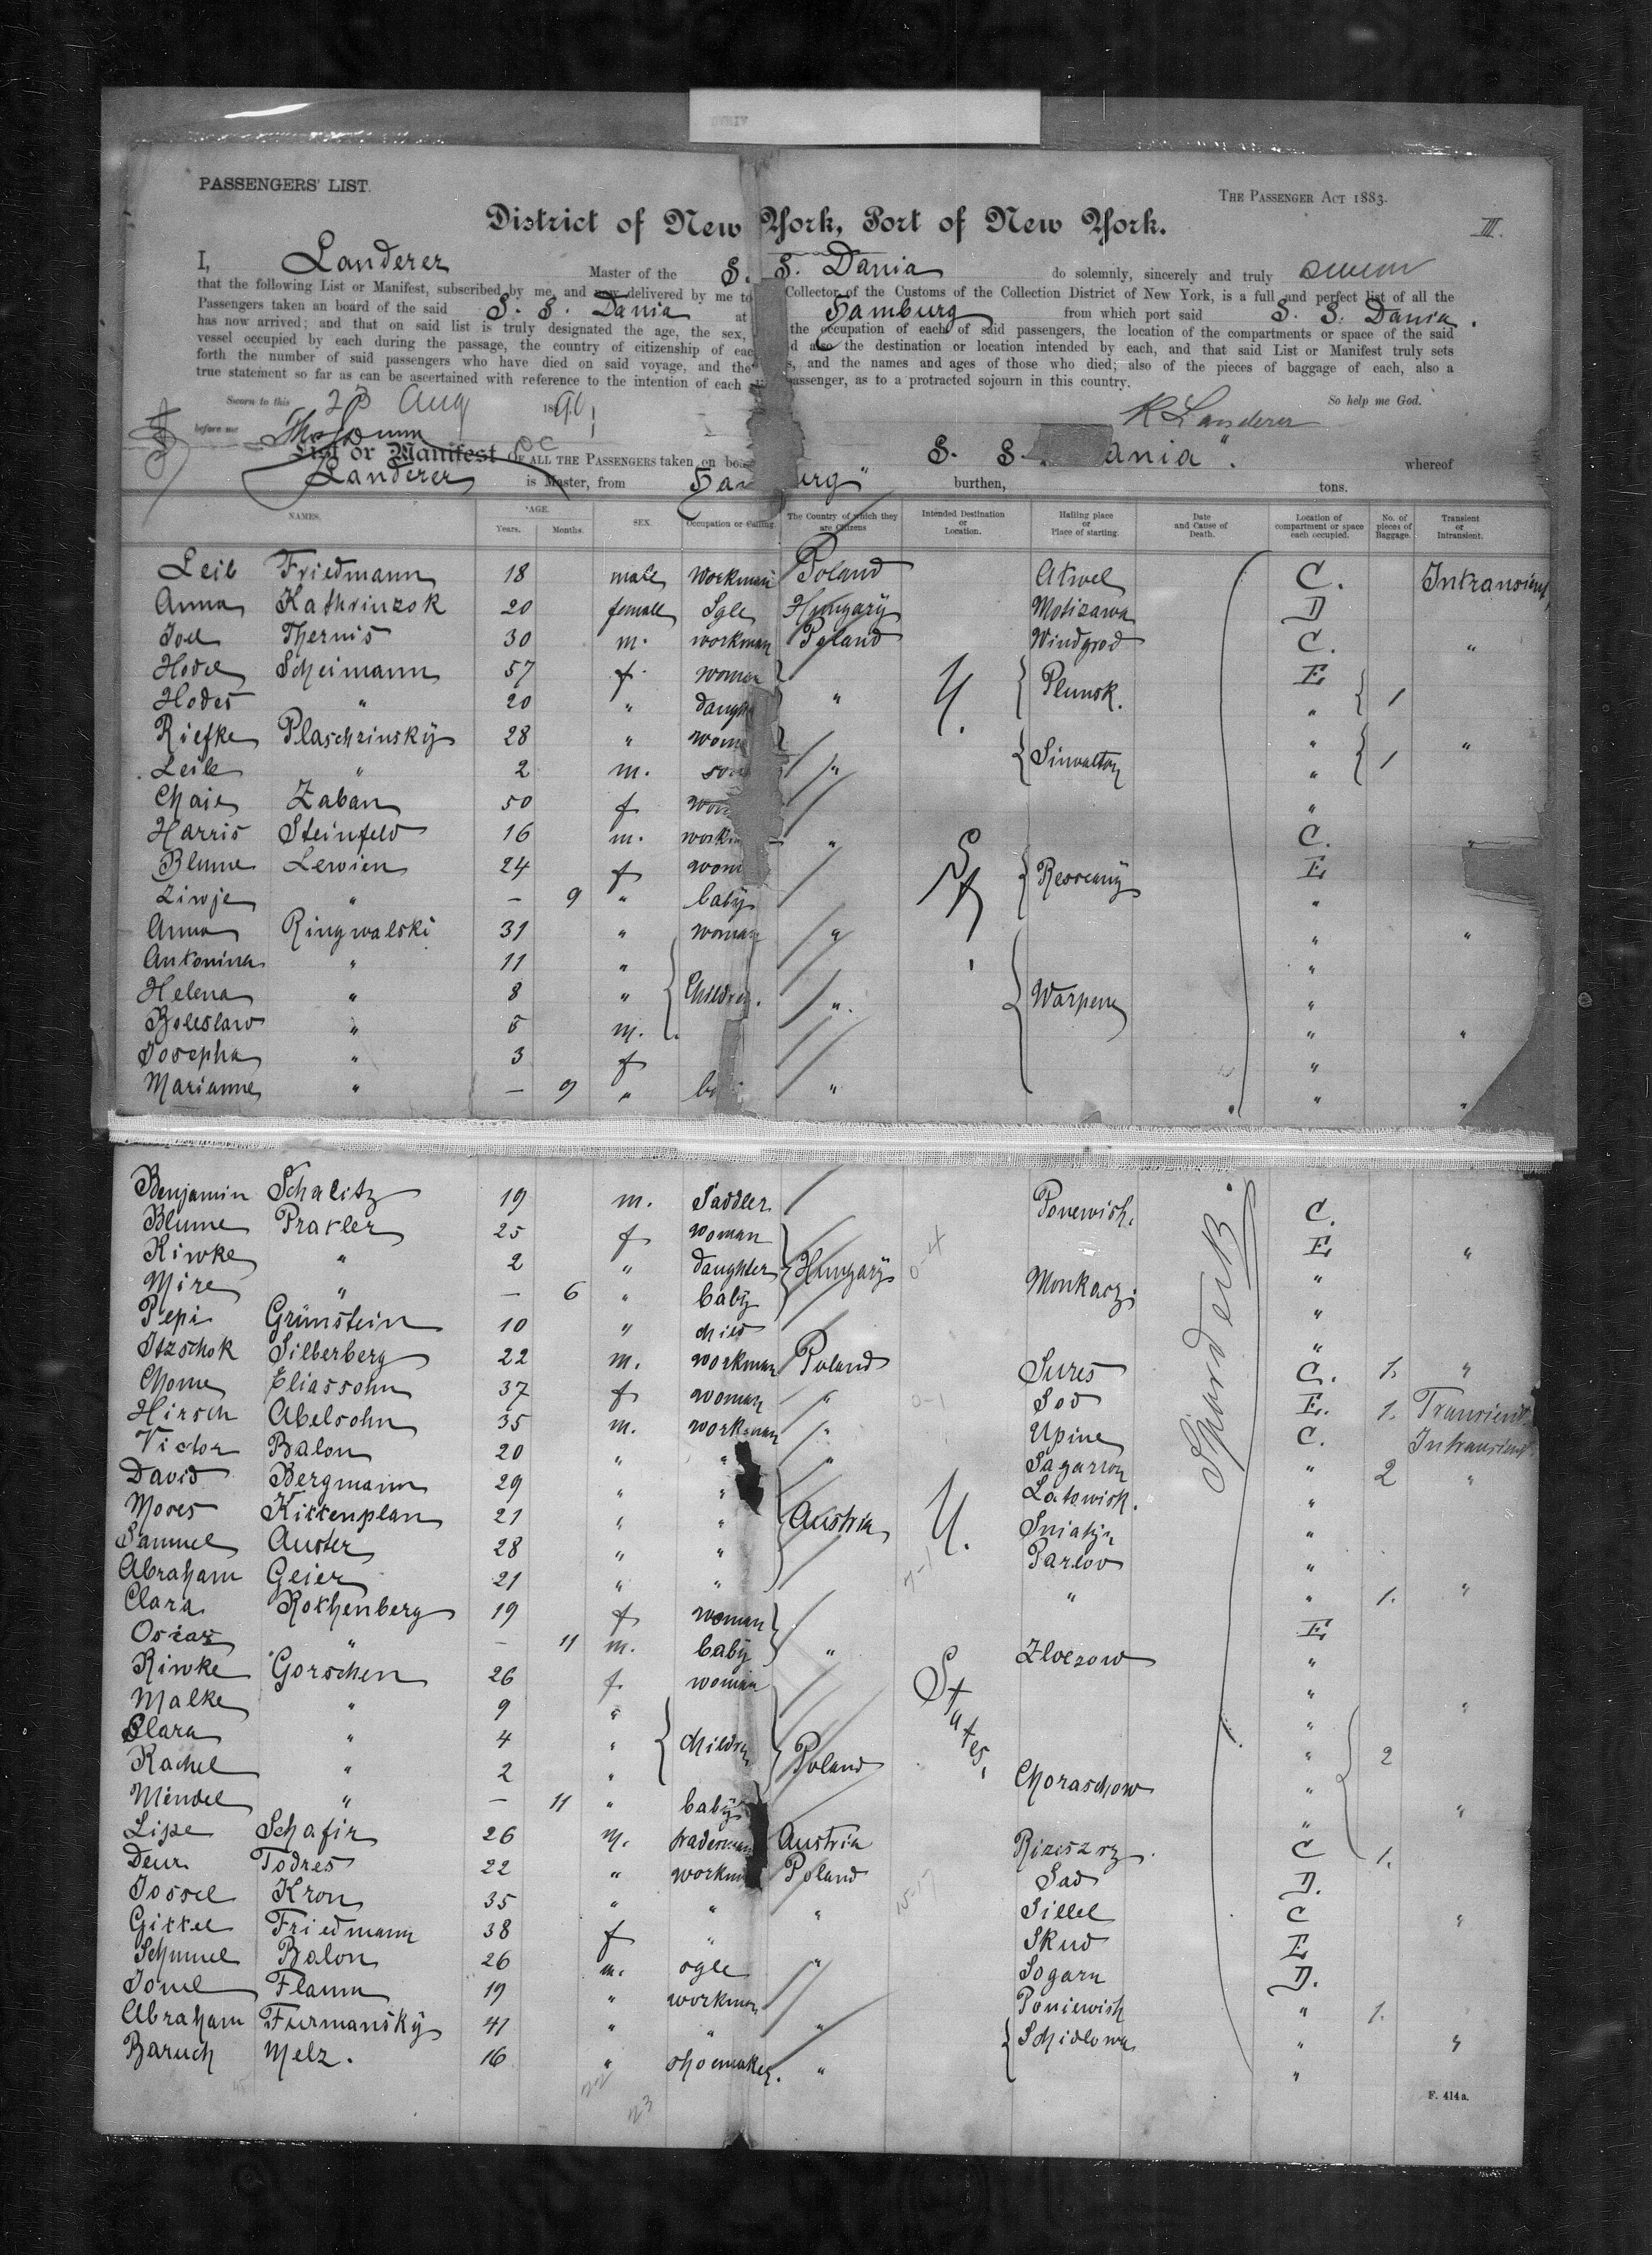 PASSENGERS' LIST.
THE PASSENGER ACT 1883.
District of New York, Port of New York.
III.
I, Landerer Master of the S. S. Dania do solemnly, sincerely and truly swear
that the following List or Manifest, subscribed by me, and now delivered by me to Collector of the Customs of the Collection District of New York, is a full and perfect list of all the
Passengers taken on board of the said S. S. Dania at Hamburg from which port said S. S. Dania.
has now arrived; and that on said list is truly designated the age, the sex, the occupation of each of said passengers, the location of the compartments or space of the said
vessel occupied by each during the passage, the country of citizenship of eac also the destination or location intended by each, and that said List or Manifest truly sets
forth the number of said passengers who have died on said voyage, and the s, and the names and ages of those who died; also of the pieces of baggage of each, also a
true statement so far as can be ascertained with reference to the intention of each passenger, as to a protracted sojourn in this country.
Sworn to this Aug 1890 So help me God.
before me R Landerer
List or Manifest OF ALL THE PASSENGERS taken on boa S. S. ania". whereof
Landerer is Master, from Ham urg" burthen, tons.
NAMES. AGE. Years. Months. SEX. Occupation or Calling. The Country of which they are Citizens Intended Destination or Location. Hailing place or Place of starting. Date and Cause of Death. Location of compartment or space each occupied. No. of pieces of Baggage. Transient or Intransient.
Leib Friedmann 18 male Workman Poland Atwel C. Intransient
Anna Kathrinzok 20 female Sgle Hungary Motizawa D
Joel Thernis 30 m. workman Poland Windgrod C. "
Hodel Scheimann 57 f. woman U. Plunsk. E
Hodes " 20 " daugh " " 1
Riefke Plaschzinsky 28 " wom Sinwaltory " 1 "
Leib " 2 m. son " "
Chaie Zaban 50 f wom "
Harris Steinfeld 16 m. workm " C. "
Blume Lewien 24 f wom St Rosseany E
Ziwje " — 9 " baby "
Anna Ringwalski 31 " woman " Warpene " "
Antonina " 11 " Children. "
Helena " 8 " " "
Boleslaw " 5 m. " "
Josepha " 3 f "
Marianne " — 9 " b " " "
Benjamin Schalitz 19 m. Saddler Ponewish. C.
Blume Prakler 25 f woman E "
Riwke " 2 " daughter Hungary Monkacz "
Mire " — 6 " baby "
Pepi Grünstein 10 " child "
Itzschok Silberberg 22 m. workman Poland Sures C. 1. "
Chome Eliassohn 37 f woman " Sod E. 1. Transient
Hirsch Abelsohn 35 m. workman " Upine C. Intransient
Victor Balon 20 " " " Sagarron " 2 "
David Bergmann 29 " " Austria U. Latowish. "
Moses Kittenplan 21 " " Sniatyn "
Samuel Auster 28 " " Parlov "
Abraham Geier 21 " " " " 1. "
Clara Rothenberg 19 f woman E
Osias " — 11 m. baby " Zloczow "
Riwke Gorschen 26 f. woman States. " "
Malke " 9 " children "
Clara " 4 " Poland " 2
Rachel " 2 " Choraschow "
Mendel " — 11 " baby " "
Lipe Schafir 26 m. tradesman Austria Rizeszrz. C 1.
Deur Todres 22 " workm Poland Sad D.
Jossel Kron 35 " " " Sillel C "
Gittel Friedmann 38 f " Skud E
Schmuel Balon 26 m. sgle " Sogarn D.
Jouel Flamm 19 " workman Poniewish " 1.
Abraham Furmansky 41 " " " Schidlowa " "
Baruch Melz. 16 " shoemaker. " "
Sponderk B.
F. 414 a.